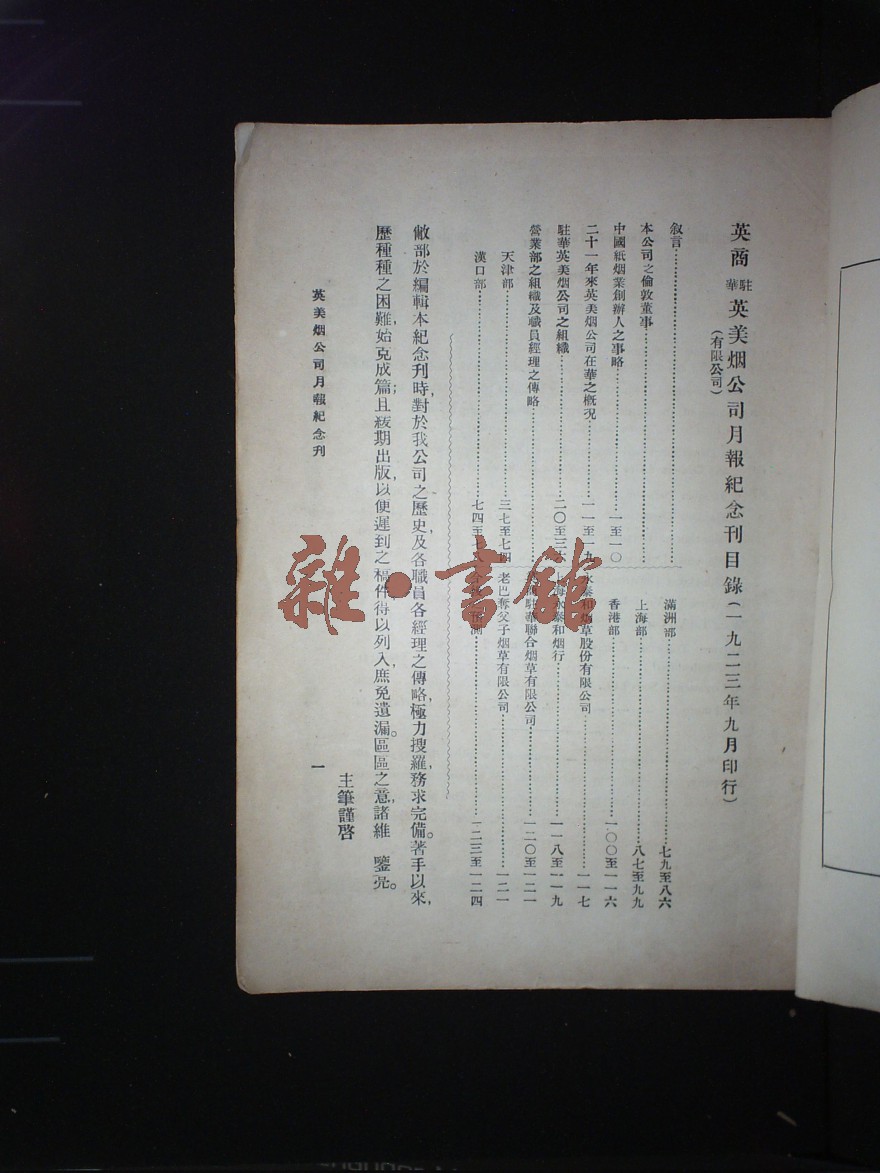 英商駐華英美烟公司月報紀念刊目錄(一九二三年九月印行)
(有限公司)
叙言
本公司之倫敦董事
中國紙烟業創辦人之事略 一至一〇
二十一年來英美烟公司在華之概況 一一至一九
駐華英美烟公司之組織 二〇至三
營業部之組織及職員經理之傳略
天津部 三七至七四
漢口部 七四至七
滿洲部 七九至八六
上海部 八七至九九
香港部 一〇〇至一一六
永泰和烟草股份有限公司 一一七
上海永泰和烟行 一一八至一一九
駐華聯合烟草有限公司 一二〇至一二一
老巴奪父子烟草有限公司 一二一
一二三至一二四
敝部於編輯本紀念刊時,對於我公司之歷史,及各職員各經理之傳略,極力搜羅,務求完備。著手以來,
歷種種之困難,始克成篇;且緩期出版,以便遲到之稿件得以列入,庶免遺漏。區區之意,諸維 鑒亮。
主筆謹啓
英美烟公司月報紀念刊 一
雜·書館